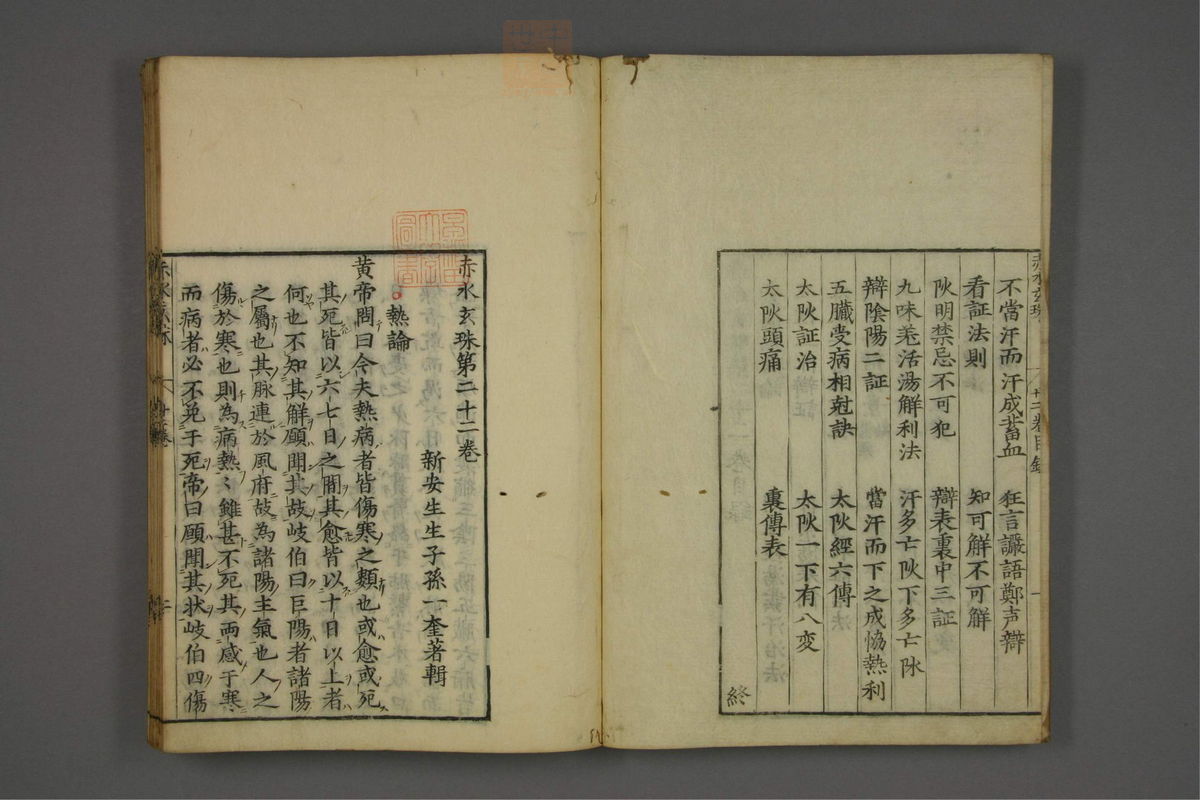 不當汗而汗成蓄血　狂言讝語鄭声辯
看証法則　知可解不可解
阦明禁忌不可犯　辯表裏中三証
九味羌活湯解利法　汗多亡阦下多亡阴
辯陰陽二証　當汗而下之成恊熱利
五臟受病相尅訣　太阦經六傳
太阦証治　太阦一下有八变
太阦頭痛　裏傳表
終
赤水玄珠第二十二卷
新安生生子孫一奎著輯
熱論
黄帝問曰今夫熱病者皆傷寒之類也或愈或死
其死皆以六七日之間其愈皆以十日以上者
何也不知其解願聞其故岐伯曰巨陽者諸陽
之屬也其脉連於風府故為諸陽主氣也人之
傷於寒也則為病熱〻雖甚不死其両感于寒
而病者必不免于死帝曰願聞其状岐伯曰傷